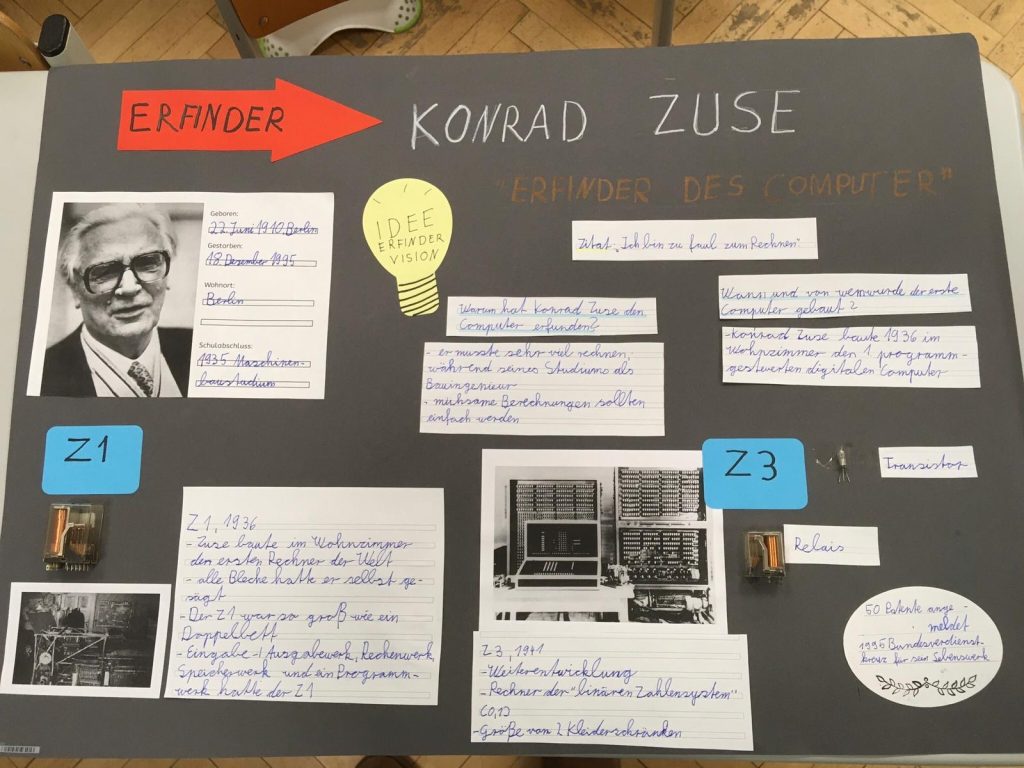 ERFINDER
KONRAD ZUSE
"ERFINDER DES COMPUTER"
Geboren:
22. Juni 1910 Berlin
Gestorben:
18. Dezember 1995
Wohnort:
Berlin
Schulabschluss:
1935 Maschinen-
baustudium
IDEE
ERFINDER
VISION
Zitat „Ich bin zu faul zum Rechnen"
Warum hat Konrad Zuse den
Computer erfunden?
- er musste sehr viel rechnen,
während seines Studiums als
Bauingenieur
- mühsame Berechnungen sollten
einfach werden
Wann und von wem wurde der erste
Computer gebaut?
- Konrad Zuse baute 1936 im
Wohnzimmer den 1. programm-
gesteuerten digitalen Computer
Z1
Z1, 1936
- Zuse baute im Wohnzimmer
den ersten Rechner der Welt
- alle Bleche hatte er selbst ge-
sägt
- Der Z1 war so groß wie ein
Doppelbett
- Eingabe-/Ausgabewerk, Rechenwerk,
Speicherwerk und ein Programm-
werk hatte der Z1
Z3
Z3, 1941
- Weiterentwicklung
- Rechner der "binären Zahlensystem"
(0,1)
- Größe von 2 Kleiderschränken
Transistor
Relais
50 Patente ange-
meldet
1995 Bundesverdienst-
kreuz für sein Lebenswerk